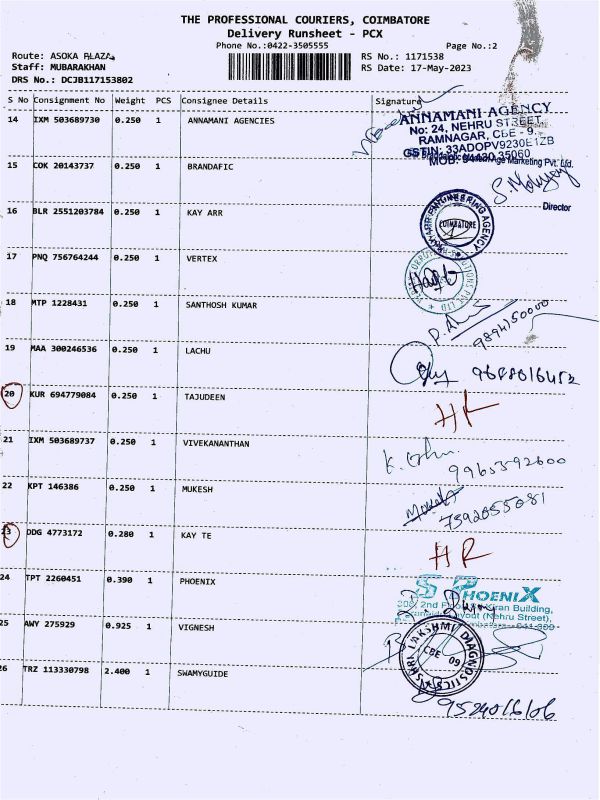 THE PROFESSIONAL COURIERS, COIMBATORE
Delivery Runsheet - PCX
Phone No.:0422-3505555
Page No.:2
Route: ASOKA PLAZA
RS No.: 1171538
Staff: MUBARAKHAN
RS Date: 17-May-2023
DRS No.: DCJB117153802
S No Consignment No Weight PCS Consignee Details Signature
14 IXM 503689730 0.250 1 ANNAMANI AGENCIES
ANNAMANI AGENCY
No: 24, NEHRU STREET,
RAMNAGAR, CBE - 9.
GSTIN: 33ADOPV9230E1ZB
MOB: 94430 35060
Marketing Pvt. Ltd.
15 COK 20143737 0.250 1 BRANDAFIC
Director
16 BLR 2551203784 0.250 1 KAY ARR
ENGINEERING AGENCY
COIMBATORE
17 PNQ 756764244 0.250 1 VERTEX
18 MTP 1228431 0.250 1 SANTHOSH KUMAR
9894150000
19 MAA 300246536 0.250 1 LACHU
9688016452
20 KUR 694779084 0.250 1 TAJUDEEN
HR
21 IXM 503689737 0.250 1 VIVEKANANTHAN
9965592600
22 KPT 146386 0.250 1 MUKESH
7592055081
23 DDG 4773172 0.280 1 KAY TE
HR
24 TPT 2260451 0.390 1 PHOENIX
PHOENIX
2nd Floor, Kiran Building,
(Nehru Street),
25 AWY 275929 0.925 1 VIGNESH
SHRI LAKSHMI DIAGNOSTICS
CBE 09
26 TRZ 113330798 2.400 1 SWAMYGUIDE
9524016106